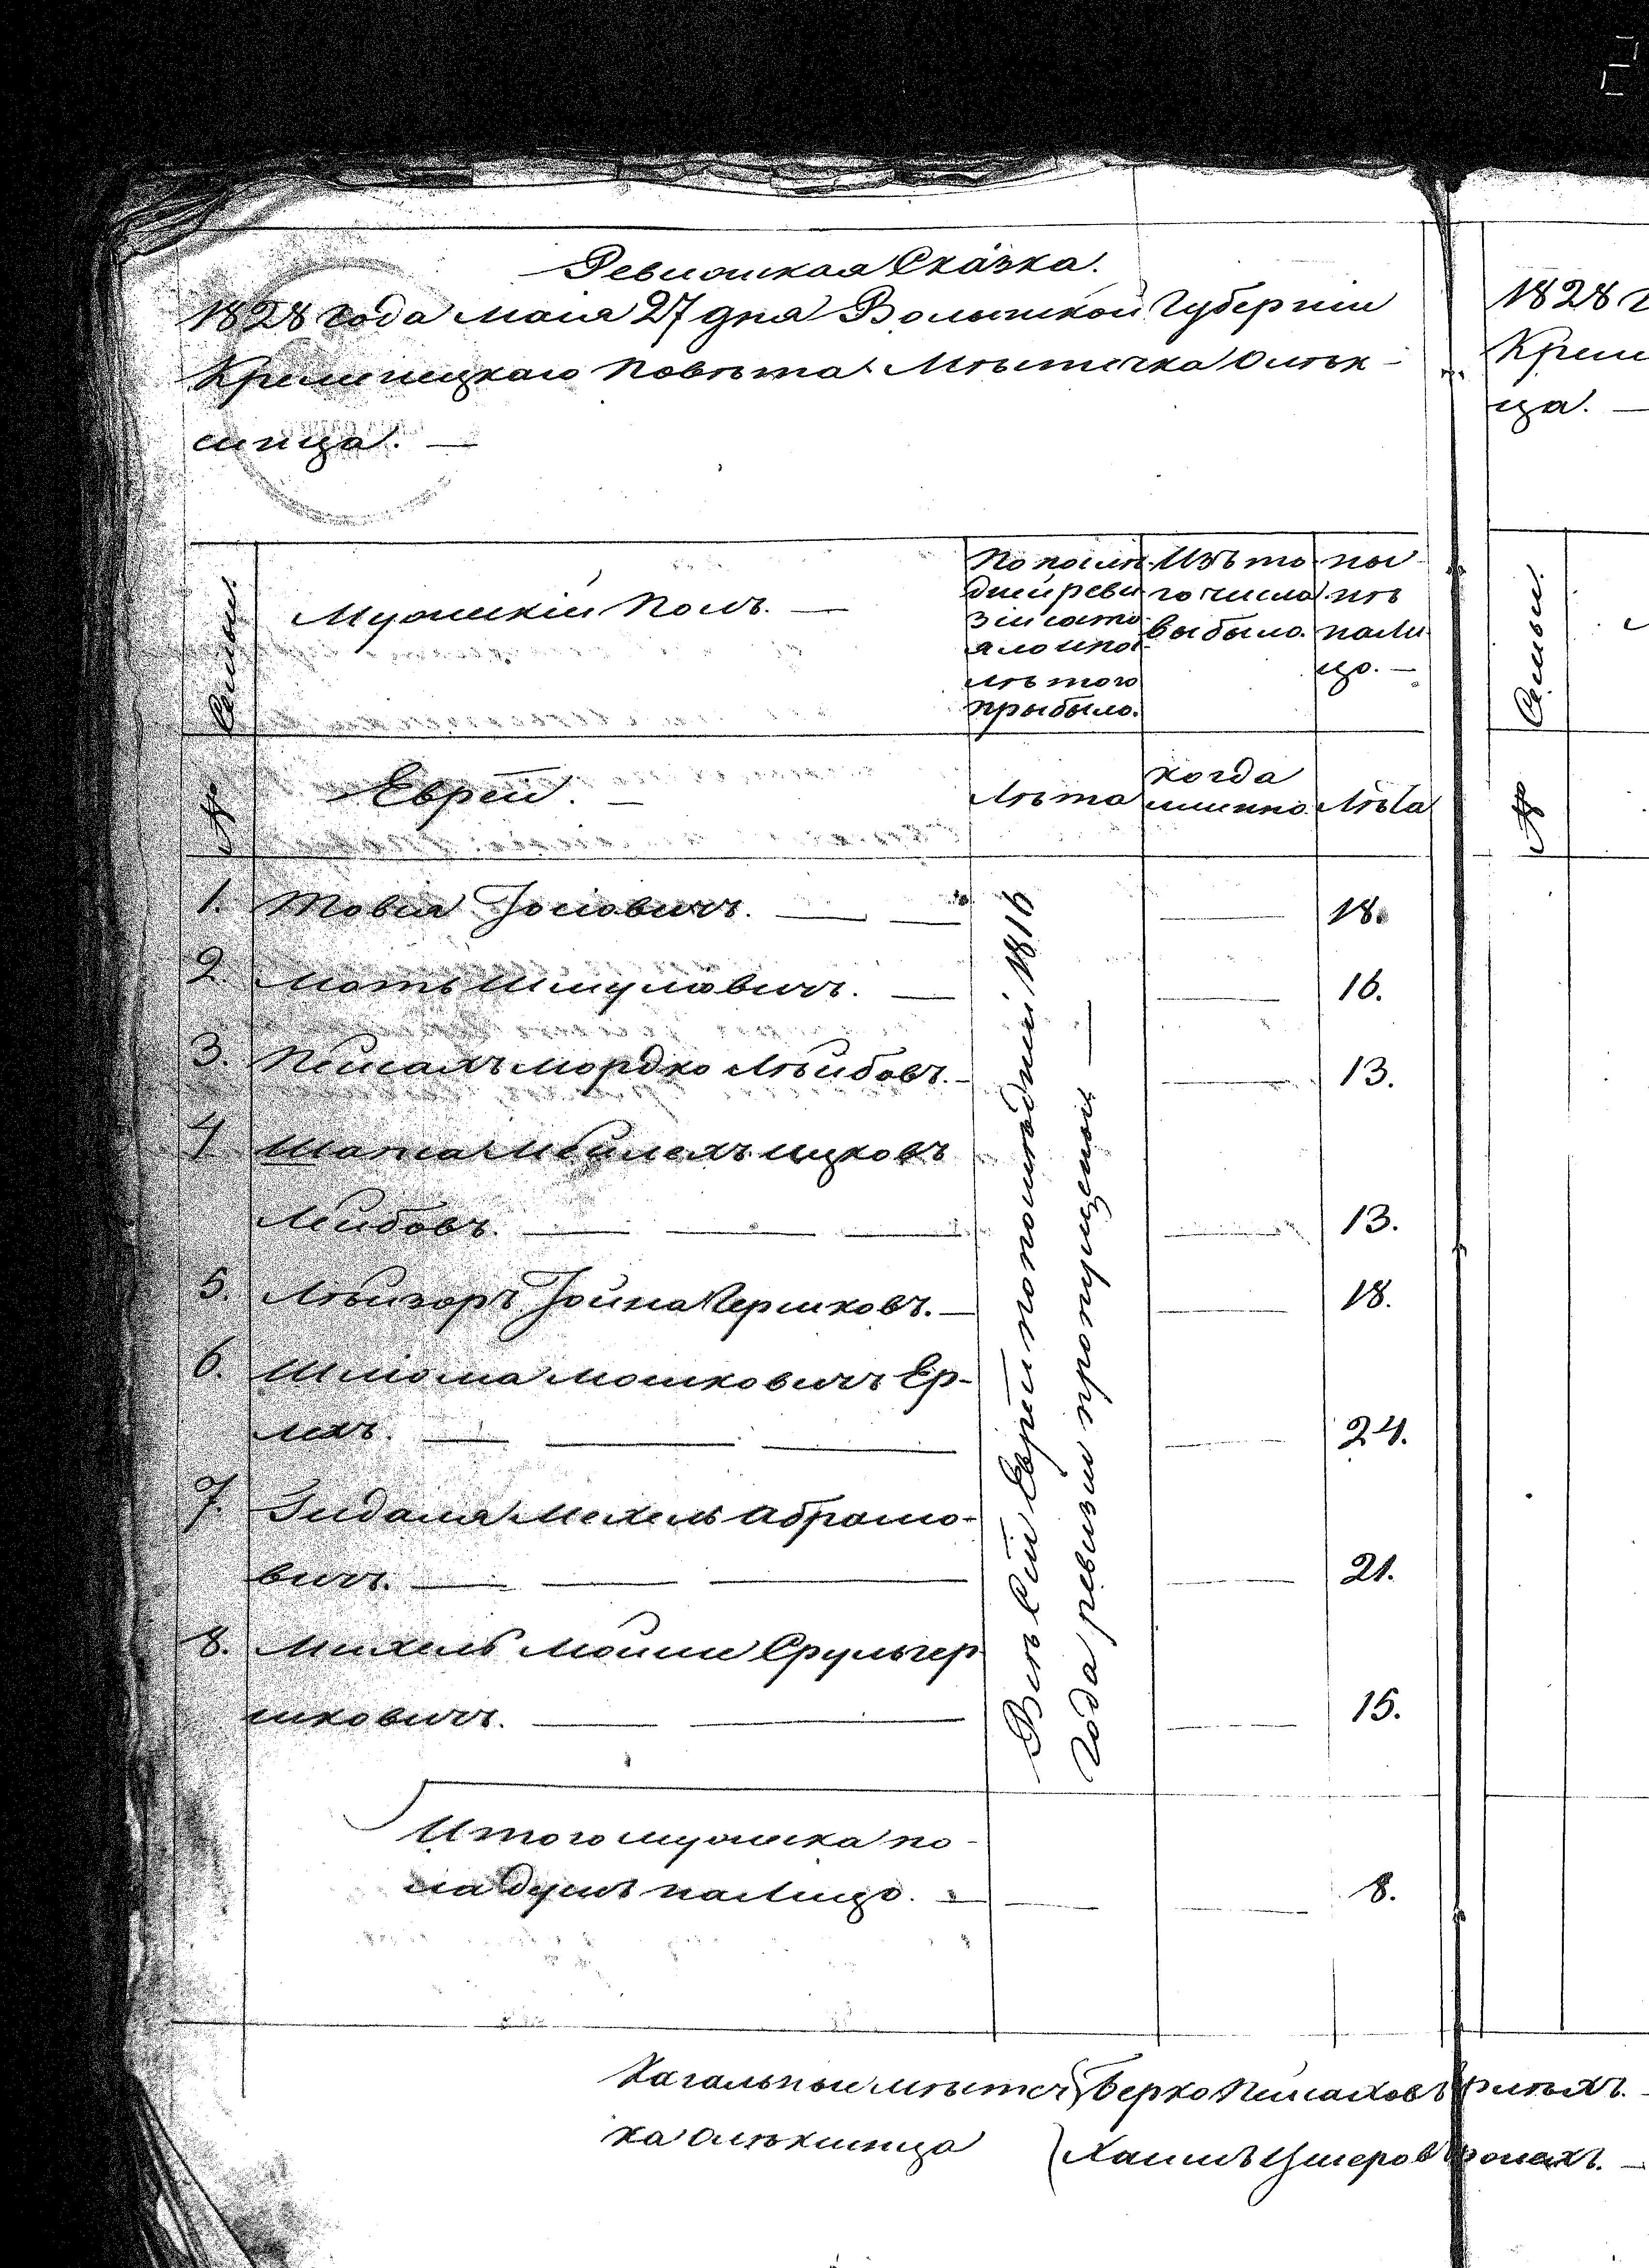 Ревизская Сказка.
1828 года маия 27 дня Волынской Губернии
Кременецкаго Повѣта Мѣстечка Олѣк-
синца. —
Семьи.
Мужескій Полъ. —
По послѣ-
дней реви-
зіи состо-
яло и по-
слѣ того
прыбыло.
Изъ то-
го числа
выбыло.
ны-
нѣ
нали-
цо. —
№
Еврей. —
Лѣта
когда
имянно.
Лѣта
1. Товія Іосіовичъ. — — 18.
2. Моть Шмулiовичъ. — — 16.
3. Пейсахъ мордко Лѣйбовъ. — — 13.
4 Мейлехъ ицковъ
Лейбовъ. — — — — 13.
5. Лѣйзоръ Іойна Гершковъ. — — 18.
6. Шліома мошковичъ Ер-
лихъ. — — — — 24.
7. Гидаля Мехель Абрамо-
вичъ. — — — — 21.
8. Михель Мойше Сруль гер
шковичъ. — — — 15.
Всѣ Сіи Евреи по послѣдней 1816
Года ревизіи пропущены —
Итого мужеска по-
ла душъ налицо. — — — 8.
Кагальные мѣстеч Берко Пейсаховъ
ка олѣксинца Хаимъ Ушеров
1828 г
Креме
ца. —
Семьи.
№